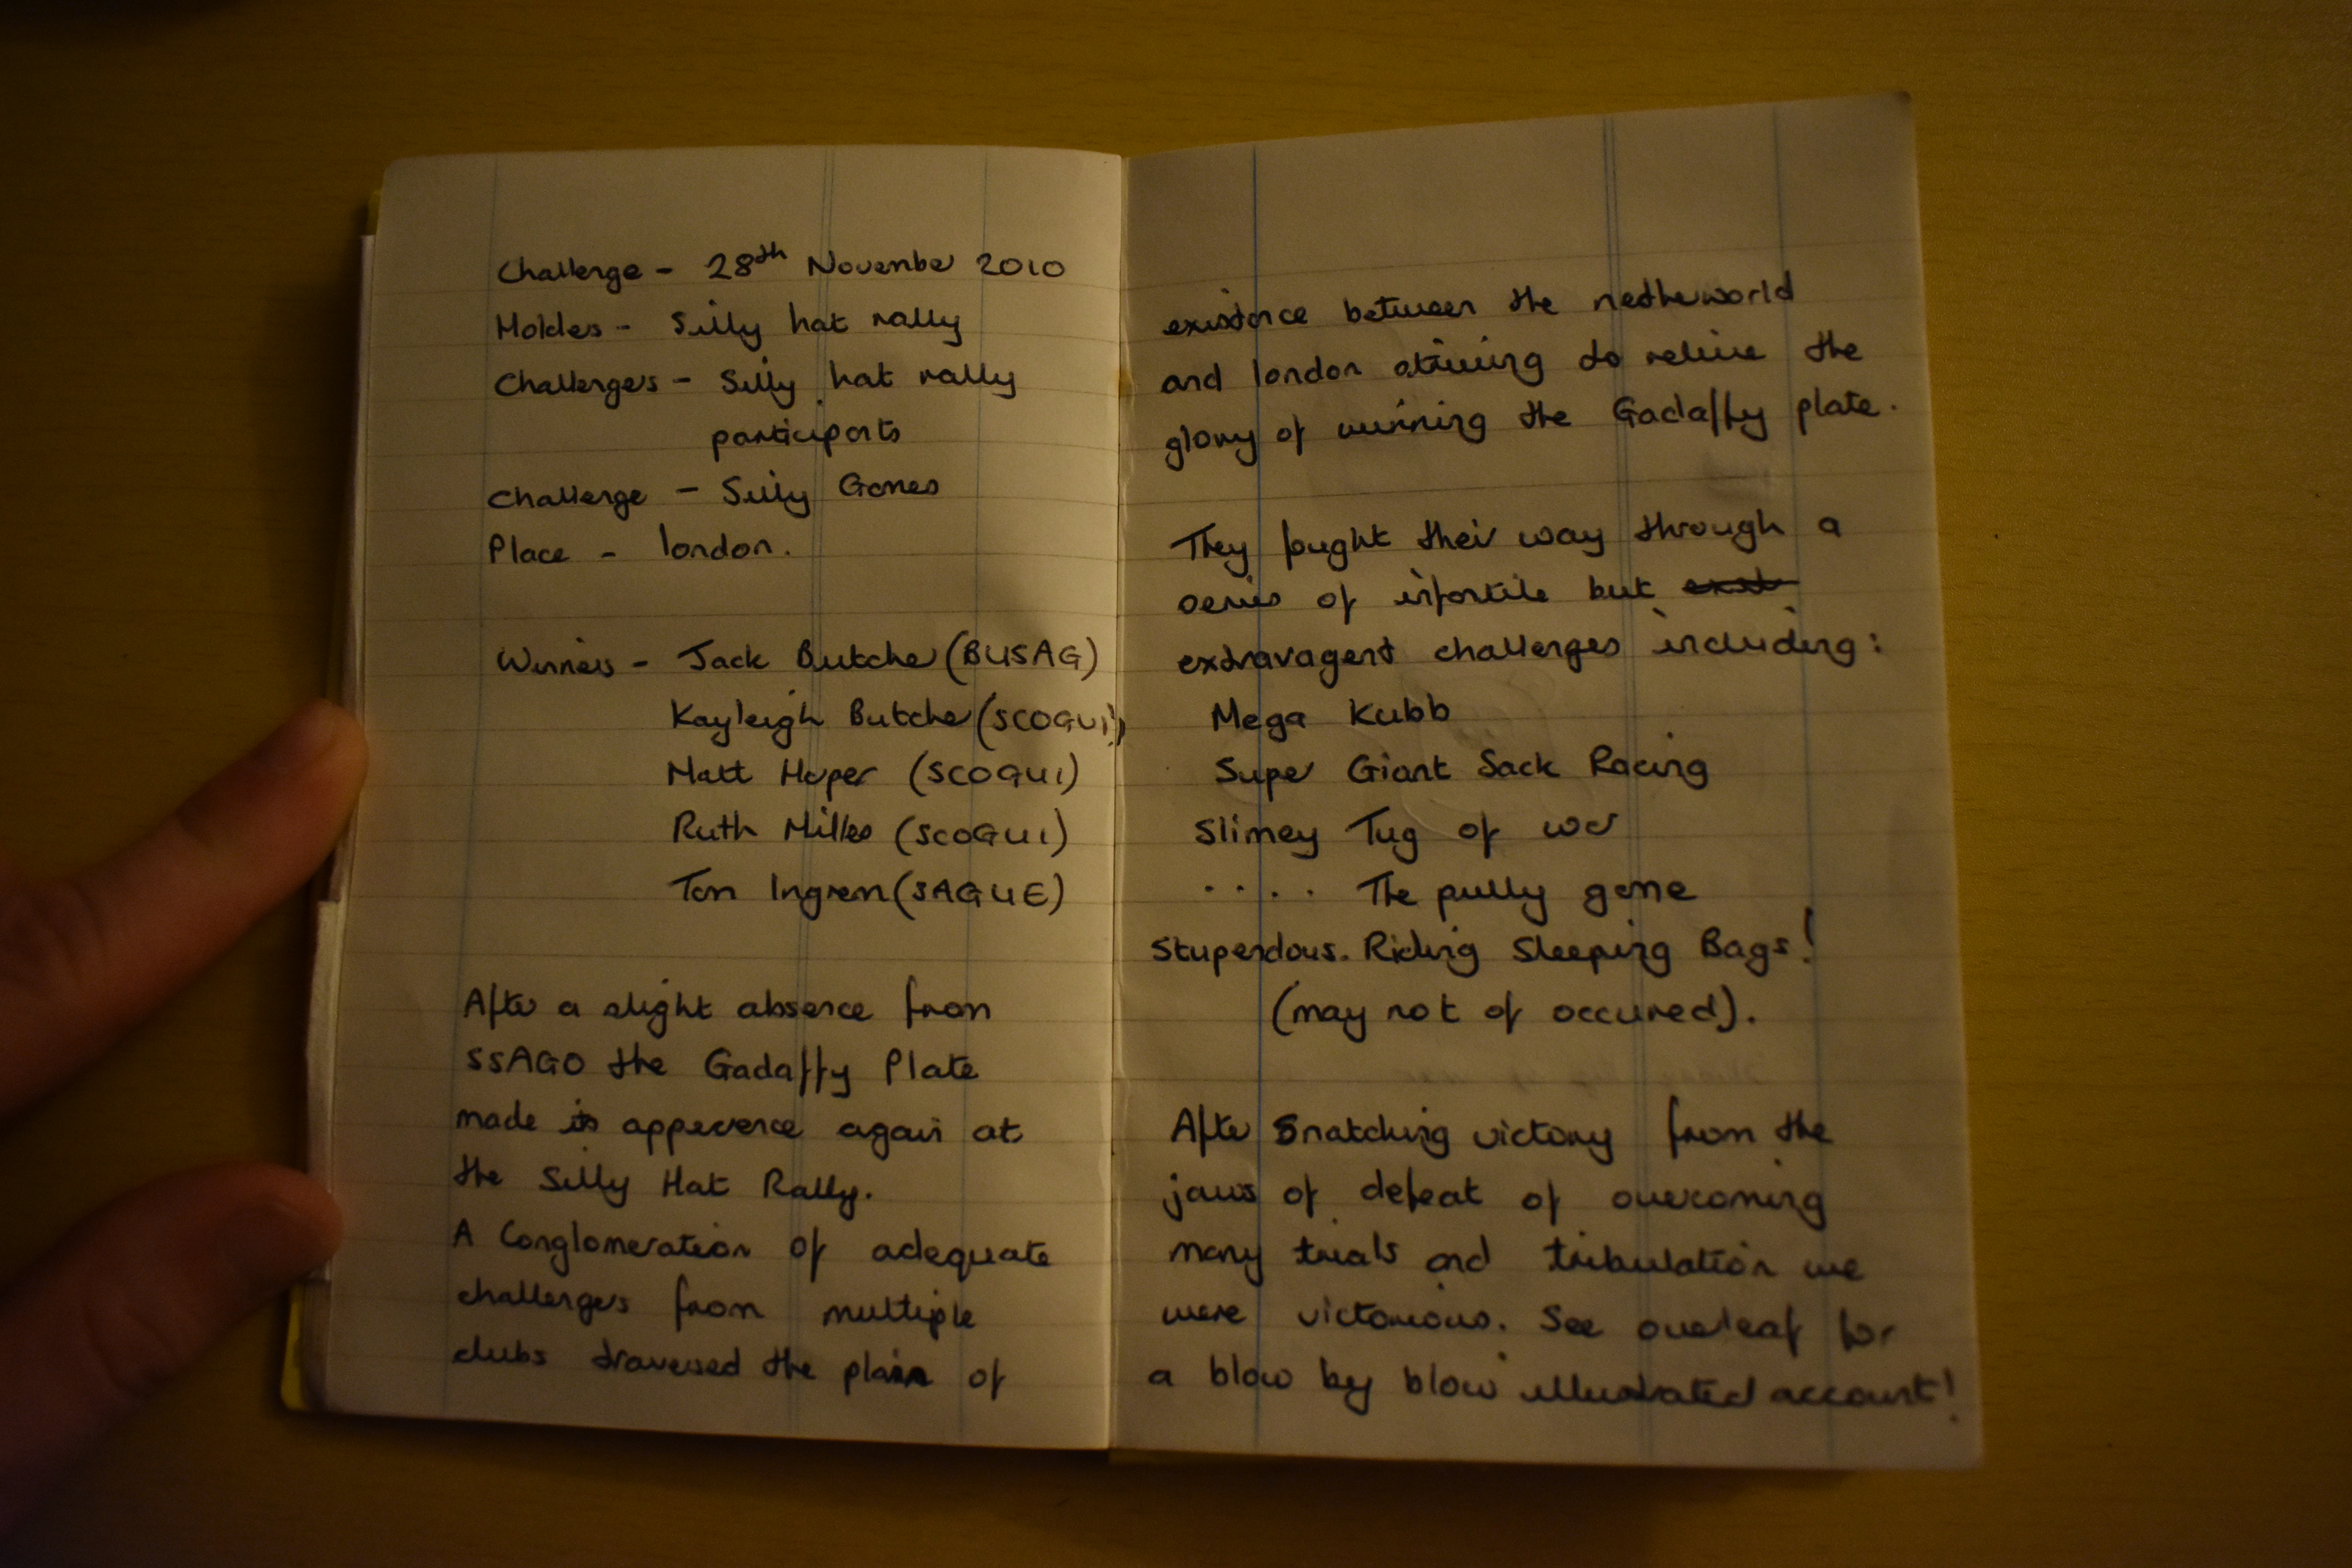 Challenge - 28th November 2010
Holders - Silly hat rally
Challengers - Silly hat rally
participants
Challenge - Silly Games
Place - london.
Winners - Jack Butcher (BUSAG)
Kayleigh Butcher (SCOGUI)
Matt Hoper (SCOGUI)
Ruth Milles (SCOGUI)
Tom Ingram (SAGUE)
After a slight absence from
SSAGO the Gadaffy Plate
made its appearence again at
the Silly Hat Rally.
A Conglomeration of adequate
challengers from multiple
clubs traversed the plain of
existance between the netherworld
and london striving to relive the
glory of winning the Gadaffy plate.
They fought their way through a
series of infantile but
extravagent challenges including:
Mega Kubb
Super Giant Sack Racing
Slimey Tug of war
.... The pully game
Stupendous. Riding Sleeping Bags!
(may not of occured).
After Snatching victory from the
jaws of defeat of overcoming
many trials and tribulation we
were victorious. See overleaf for
a blow by blow illustrated account!